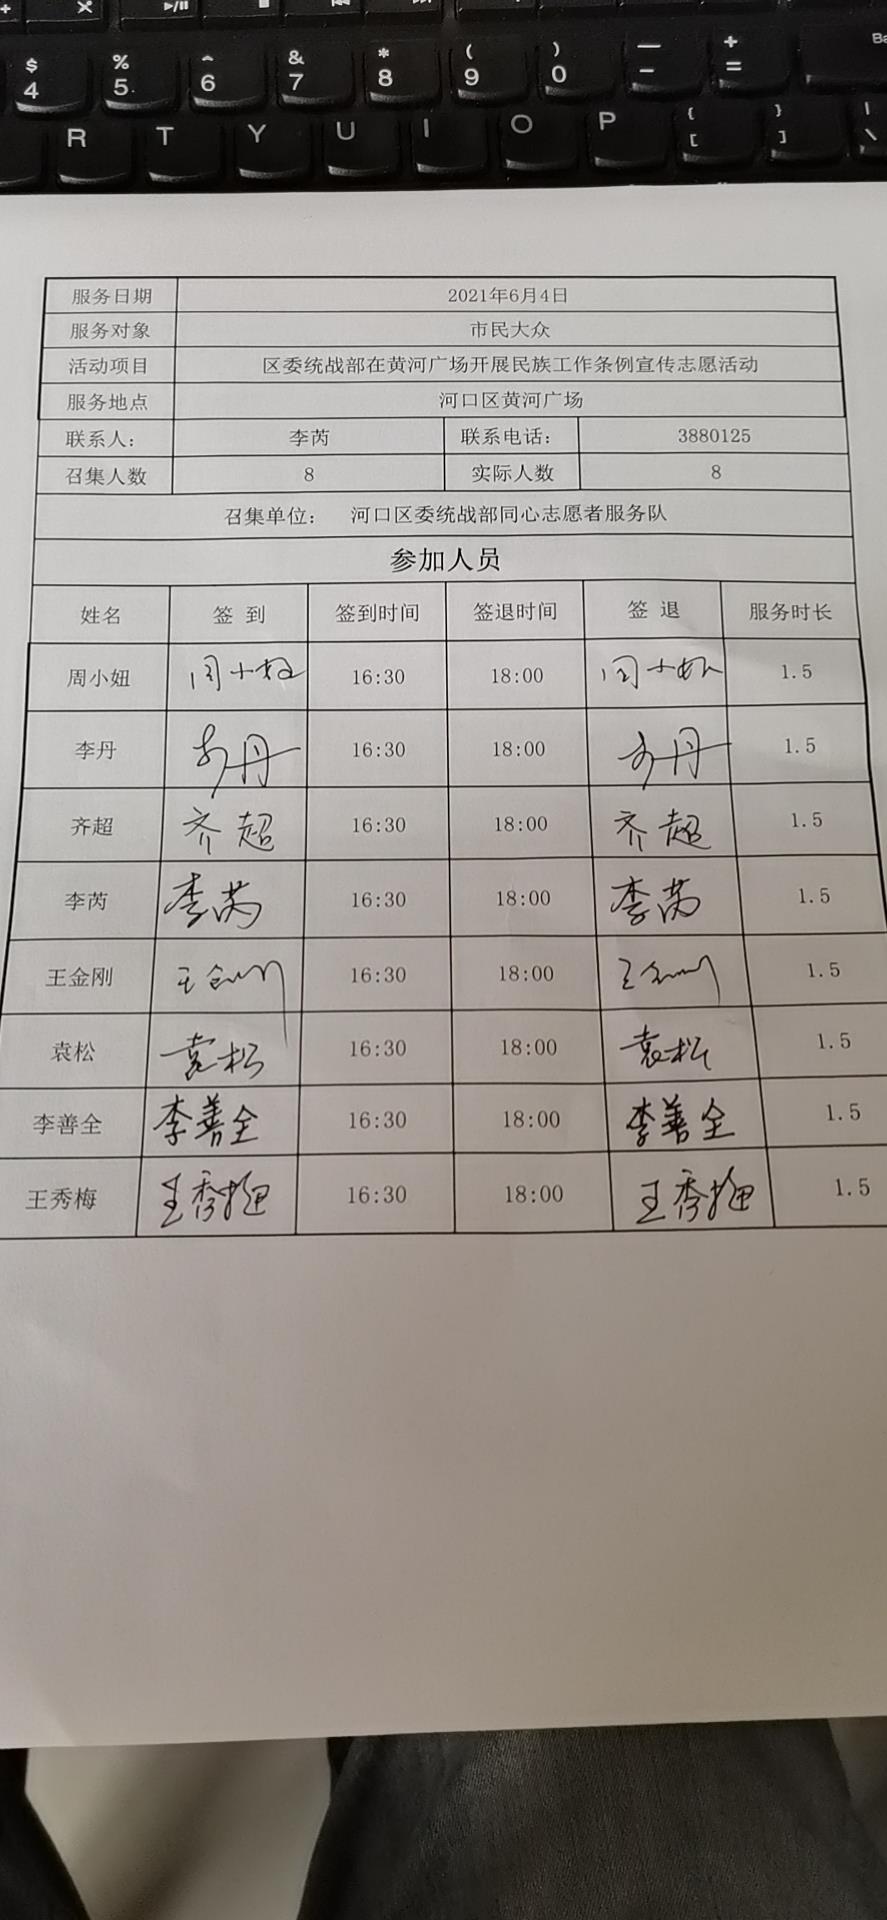 $ % ^ & * ( ) — +
4 5 6 7 8 9 0 - = Ba
R T Y U I O P { [ } ] | \
服务日期 2021年6月4日
服务对象 市民大众
活动项目 区委统战部在黄河广场开展民族工作条例宣传志愿活动
服务地点 河口区黄河广场
联系人： 李芮 联系电话： 3880125
召集人数 8 实际人数 8
召集单位： 河口区委统战部同心志愿者服务队
参加人员
姓名 签 到 签到时间 签退时间 签 退 服务时长
周小妞 周小妞 16:30 18:00 周小妞 1.5
李丹 李丹 16:30 18:00 李丹 1.5
齐超 齐超 16:30 18:00 齐超 1.5
李芮 李芮 16:30 18:00 李芮 1.5
王金刚 王金刚 16:30 18:00 王金刚 1.5
袁松 袁松 16:30 18:00 袁松 1.5
李善全 李善全 16:30 18:00 李善全 1.5
王秀梅 王秀梅 16:30 18:00 王秀梅 1.5